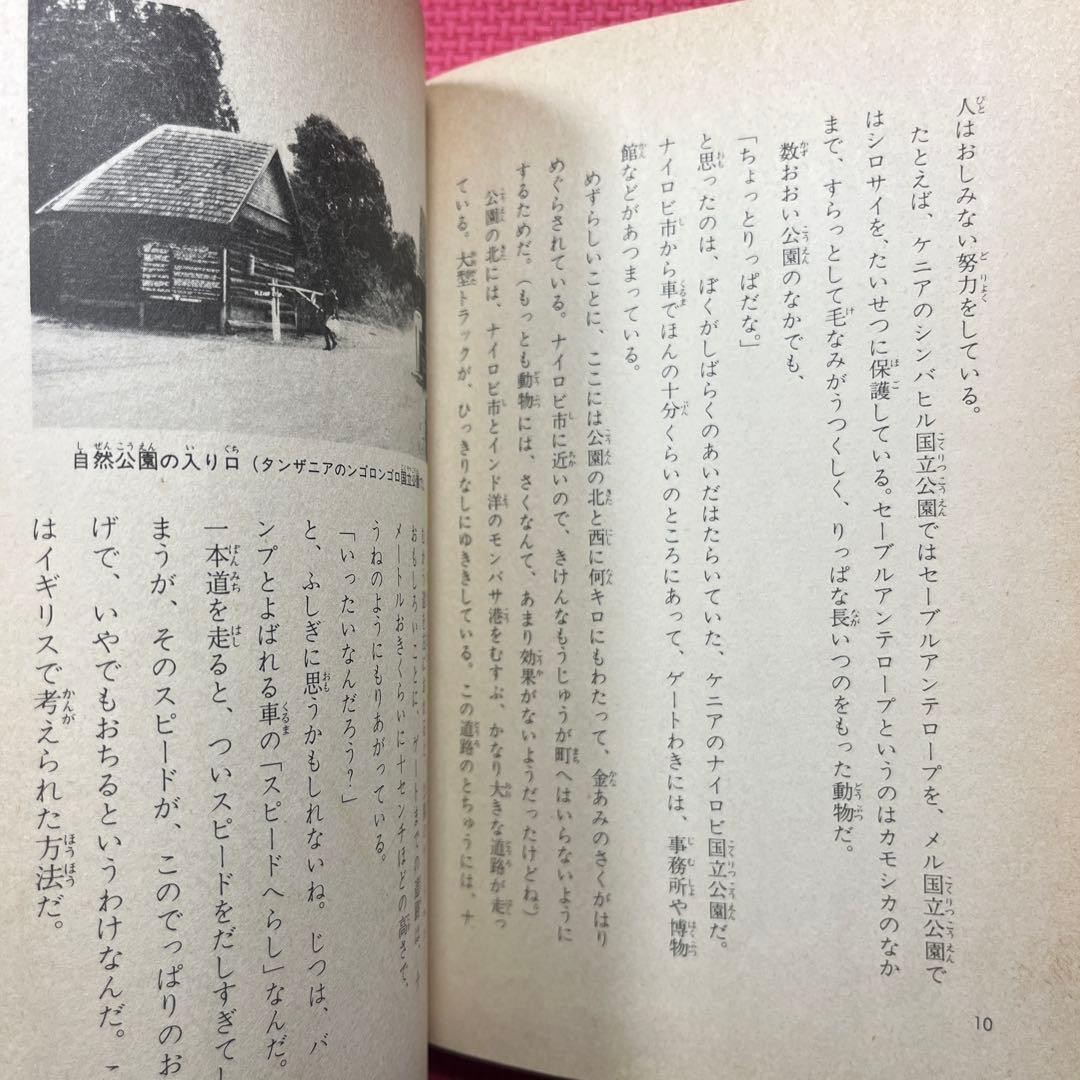 人はおしみない努力をしている。
たとえば、ケニアのシンバヒル国立公園ではセーブルアンテロープを、メル国立公園で
はシロサイを、たいせつに保護している。セーブルアンテロープというのはカモシカのなか
まで、すらっとして毛なみがうつくしく、りっぱな長いつのをもった動物だ。
数おおい公園のなかでも、
「ちょっとりっぱだな。」
と思ったのは、ぼくがしばらくのあいだはたらいていた、ケニアのナイロビ国立公園だ。
ナイロビ市から車でほんの十分くらいのところにあって、ゲートわきには、事務所や博物
館などがあつまっている。
めずらしいことに、ここには公園の北と西に何キロにもわたって、金あみのさくがはり
めぐらされている。ナイロビ市に近いので、きけんなもうじゅうが町へはいらないように
するためだ。（もっとも動物には、さくなんて、あまり効果がないようだったけどね。）
公園の北には、ナイロビ市とインド洋のモンバサ港をむすぶ、かなり大きな道路が走っ
ている。大型トラックが、ひっきりなしにゆききしている。この道路のとちゅうには、ナ
10
自然公園の入り口（タンザニアのンゴロンゴロ国立公園
おもしろいことに、ゲートまでの道路は、
メートルおきくらいに十センチほどの高さで、
うねのようにもりあがっている。
「いったいなんだろう？」
と、ふしぎに思うかもしれないね。じつは、バ
ンプとよばれる車の「スピードへらし」なんだ。
一本道を走ると、ついスピードをだしすぎてし
まうが、そのスピードが、このでっぱりのお
げで、いやでもおちるというわけなんだ。
はイギリスで考えられた方法だ。